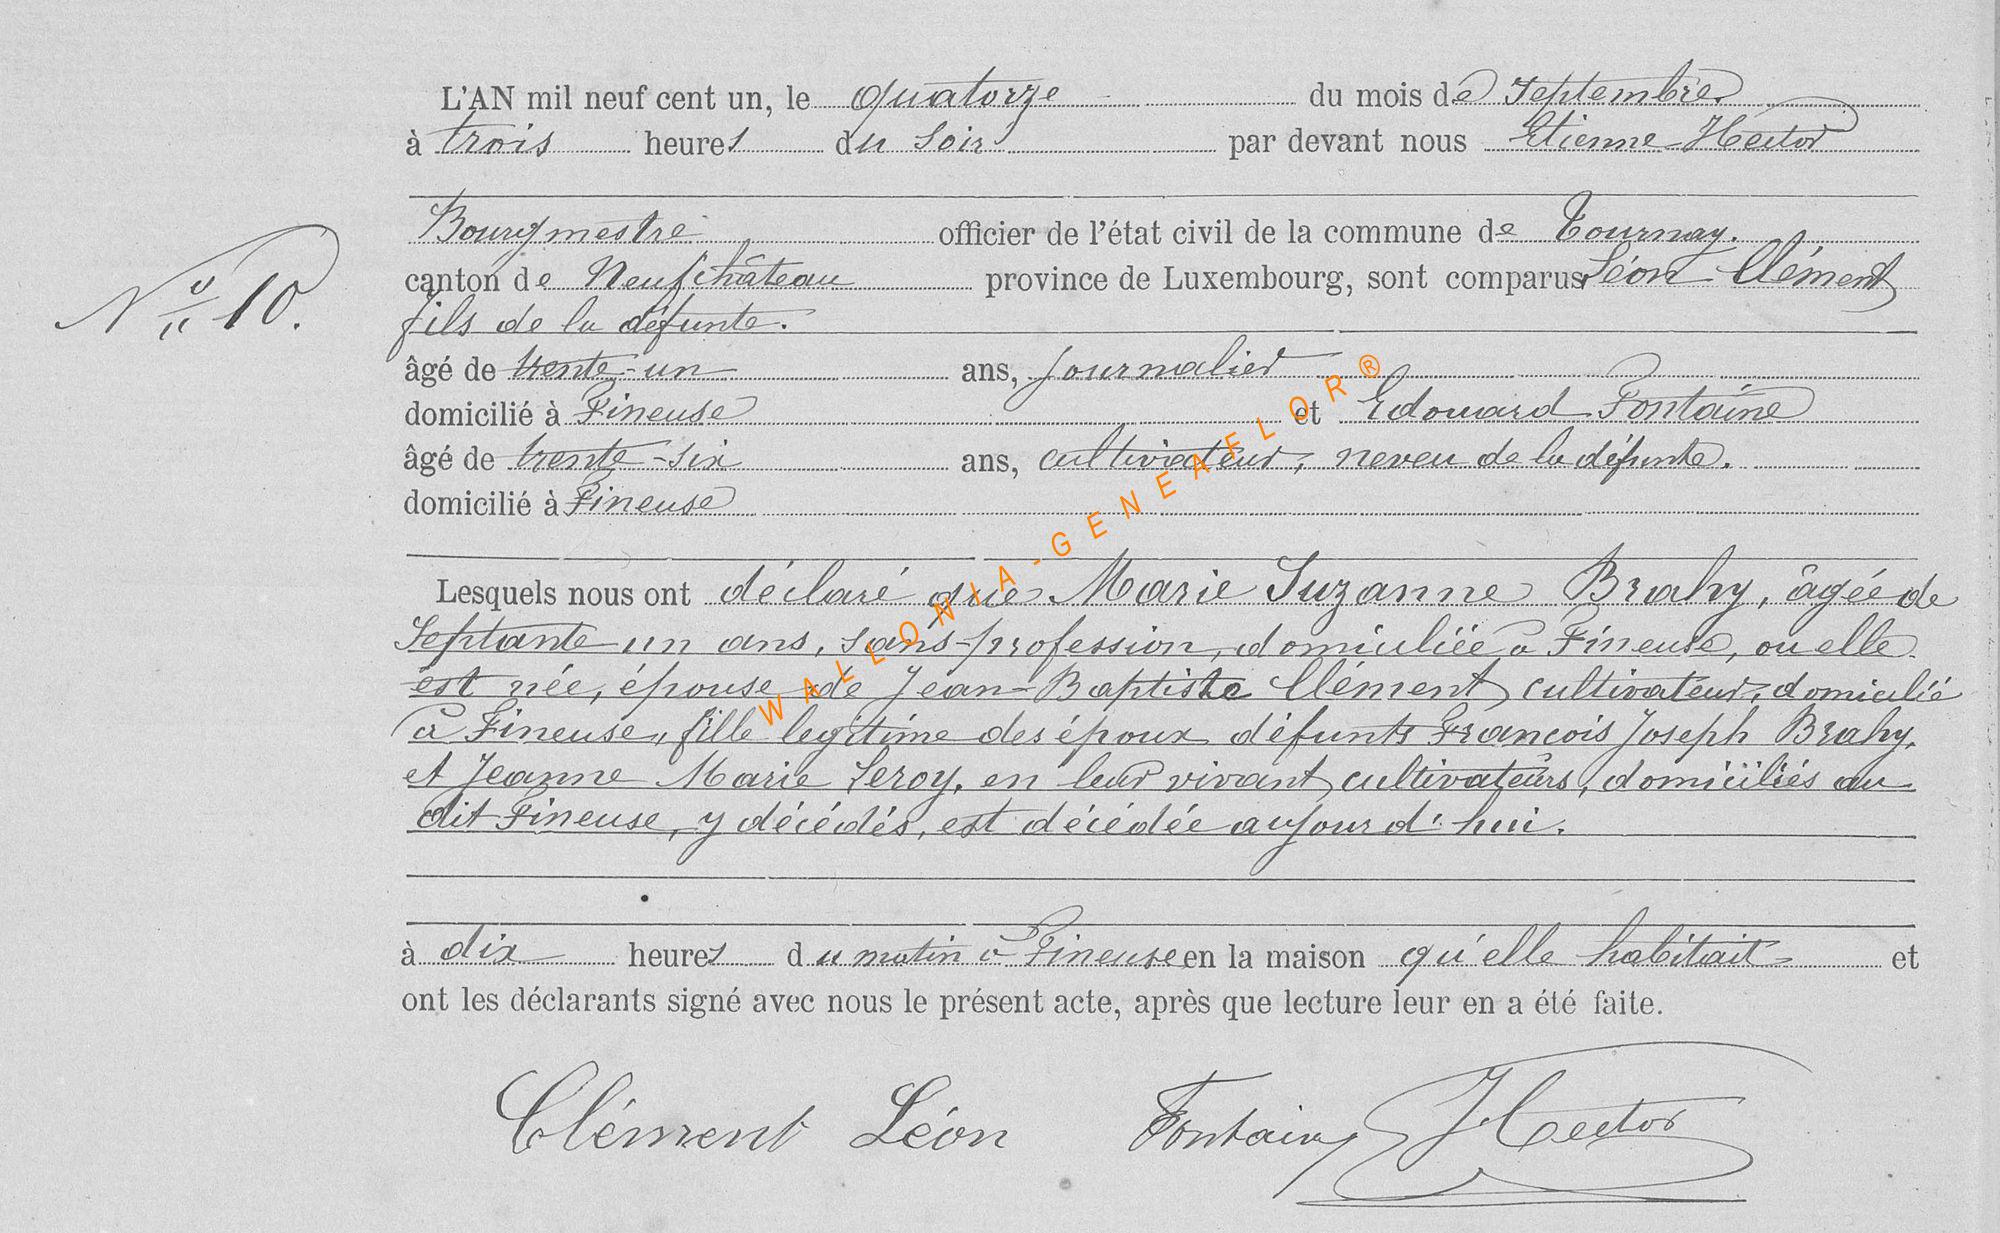 L'AN mil neuf cent un, le quatorze du mois de Septembre
à trois heures du soir par devant nous Etienne Hector
Bourgmestre officier de l'état civil de la commune de Tournay.
N° 10.
canton de Neufchâteau province de Luxembourg, sont comparus Léon Clément
fils de la défunte.
âgé de trente-un ans, journalier
domicilié à Fineuse et Edouard Fontaine
âgé de trente-six ans, cultivateur, neveu de la défunte.
domicilié à Fineuse
Lesquels nous ont déclaré que Marie Suzanne Brahy, âgée de
Septante un ans, sans profession, domiciliée à Fineuse, ou elle
est née, épouse de Jean-Baptiste Clément cultivateur, domicilié
à Fineuse, fille legitime des époux défunts François Joseph Brahy,
et Jeanne Marie Leroy, en leur vivant cultivateurs, domiciliés au
dit Fineuse, y décédés, est décédée aujourd'hui.
à dix heures du matin à Fineuse en la maison qu'elle habitait et
ont les déclarants signé avec nous le présent acte, après que lecture leur en a été faite.
Clément Léon Fontaine Hector
WALLONIA-GENEAFLOR®